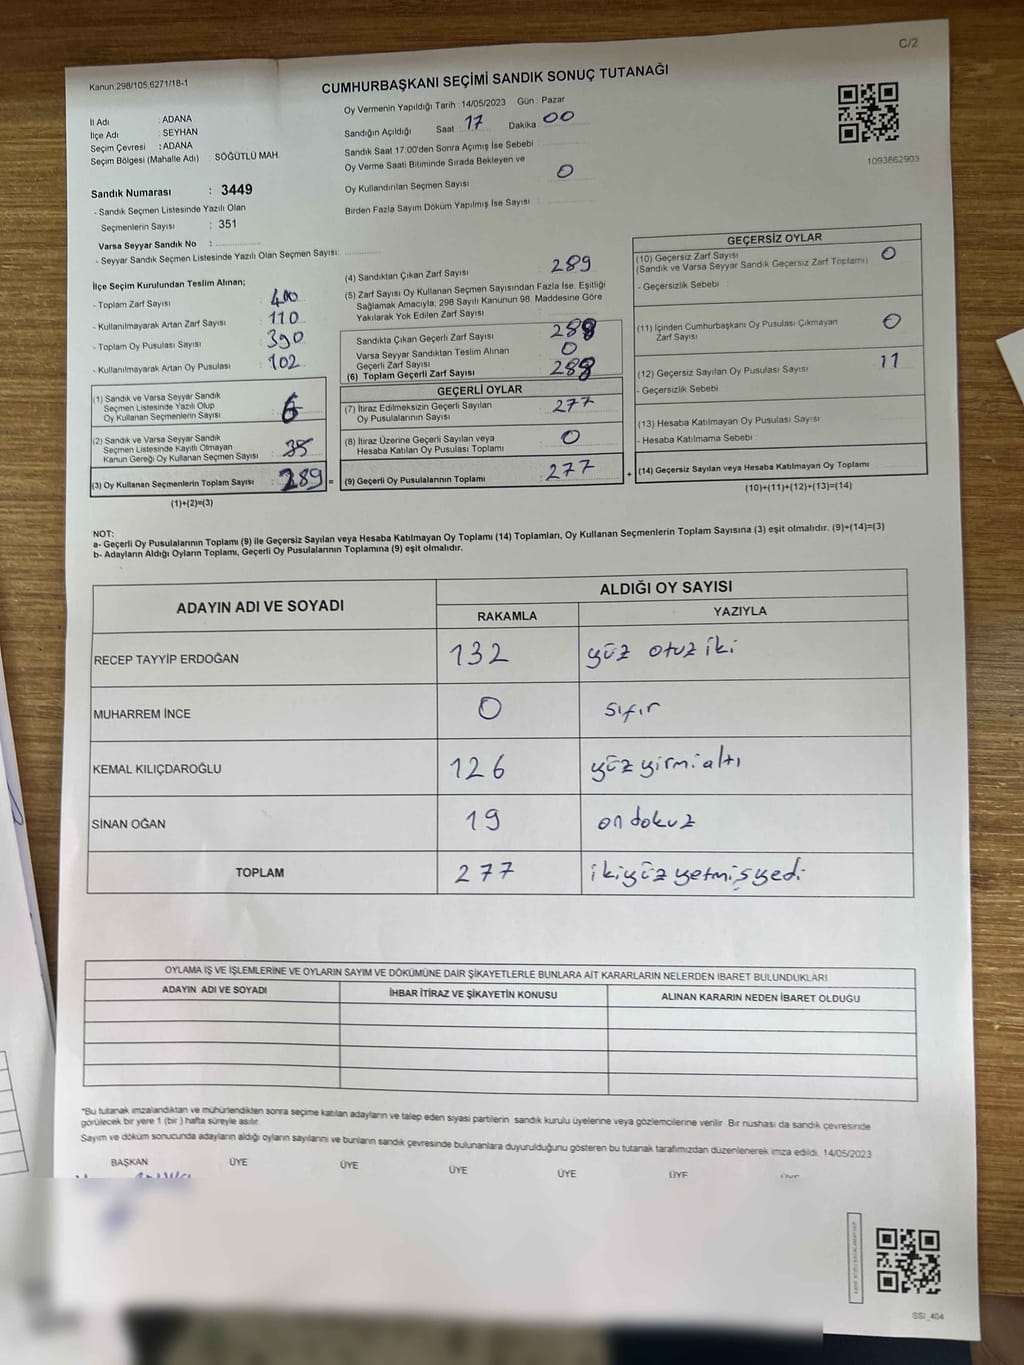 C/2
Kanun:298/105,6271/18-1
CUMHURBAŞKANI SEÇİMİ SANDIK SONUÇ TUTANAĞI
İl Adı : ADANA
İlçe Adı : SEYHAN
Seçim Çevresi : ADANA
Seçim Bölgesi (Mahalle Adı) SÖĞÜTLÜ MAH.
Sandık Numarası : 3449
- Sandık Seçmen Listesinde Yazılı Olan
Seçmenlerin Sayısı : 351
Varsa Seyyar Sandık No :
- Seyyar Sandık Seçmen Listesinde Yazılı Olan Seçmen Sayısı:
Oy Vermenin Yapıldığı Tarih : 14/05/2023 Gün : Pazar
Sandığın Açıldığı Saat 17 Dakika : 00
Sandık Saat 17:00'den Sonra Açımış İse Sebebi :
Oy Verme Saati Bitiminde Sırada Bekleyen ve
Oy Kullandırılan Seçmen Sayısı : 0
Birden Fazla Sayım Döküm Yapılmış İse Sayısı :
1093862903
İlçe Seçim Kurulundan Teslim Alınan;
- Toplam Zarf Sayısı : 400
- Kullanılmayarak Artan Zarf Sayısı : 110
- Toplam Oy Pusulası Sayısı : 390
- Kullanılmayarak Artan Oy Pusulası : 102
(1) Sandık ve Varsa Seyyar Sandık
Seçmen Listesinde Yazılı Olup
Oy Kullanan Seçmenlerin Sayısı
(2) Sandık ve Varsa Seyyar Sandık
Seçmen Listesinde Kayıtlı Olmayan
Kanun Gereği Oy Kullanan Seçmen Sayısı
(3) Oy Kullanan Seçmenlerin Toplam Sayısı 289 =
(1)+(2)=(3)
(4) Sandıktan Çıkan Zarf Sayısı : 289
(5) Zarf Sayısı Oy Kullanan Seçmen Sayısından Fazla İse, Eşitliği
Sağlamak Amacıyla, 298 Sayılı Kanunun 98. Maddesine Göre
Yakılarak Yok Edilen Zarf Sayısı :
Sandıkta Çıkan Geçerli Zarf Sayısı : 288
Varsa Seyyar Sandıktan Teslim Alınan
Geçerli Zarf Sayısı : 0
(6) Toplam Geçerli Zarf Sayısı : 288
GEÇERLİ OYLAR
(7) İtiraz Edilmeksizin Geçerli Sayılan
Oy Pusulalarının Sayısı : 277
(8) İtiraz Üzerine Geçerli Sayılan veya
Hesaba Katılan Oy Pusulası Toplamı : 0
(9) Geçerli Oy Pusulalarının Toplamı : 277 +
GEÇERSİZ OYLAR
(10) Geçersiz Zarf Sayısı
(Sandık ve Varsa Seyyar Sandık Geçersiz Zarf Toplamı) : 0
- Geçersizlik Sebebi :
(11) İçinden Cumhurbaşkanı Oy Pusulası Çıkmayan
Zarf Sayısı : 0
(12) Geçersiz Sayılan Oy Pusulası Sayısı : 11
- Geçersizlik Sebebi
(13) Hesaba Katılmayan Oy Pusulası Sayısı
- Hesaba Katılmama Sebebi :
(14) Geçersiz Sayılan veya Hesaba Katılmayan Oy Toplamı
(10)+(11)+(12)+(13)=(14)
NOT:
a- Geçerli Oy Pusulalarının Toplamı (9) ile Geçersiz Sayılan veya Hesaba Katılmayan Oy Toplamı (14) Toplamları, Oy Kullanan Seçmenlerin Toplam Sayısına (3) eşit olmalıdır. (9)+(14)=(3)
b- Adayların Aldığı Oyların Toplamı, Geçerli Oy Pusulalarının Toplamına (9) eşit olmalıdır.
ADAYIN ADI VE SOYADI
ALDIĞI OY SAYISI
RAKAMLA YAZIYLA
RECEP TAYYİP ERDOĞAN 132 yüz otuz iki
MUHARREM İNCE 0 sıfır
KEMAL KILIÇDAROĞLU 126 yüz yirmi altı
SİNAN OĞAN 19 on dokuz
TOPLAM 277 ikiyüz yetmiş yedi
OYLAMA İŞ VE İŞLEMLERİNE VE OYLARIN SAYIM VE DÖKÜMÜNE DAİR ŞİKAYETLERLE BUNLARA AİT KARARLARIN NELERDEN İBARET BULUNDUKLARI
ADAYIN ADI VE SOYADI İHBAR İTİRAZ VE ŞİKAYETİN KONUSU ALINAN KARARIN NEDEN İBARET OLDUĞU
*Bu tutanak imzalandıktan ve mühürlendikten sonra seçime katılan adayların ve talep eden siyasi partilerin sandık kurulu üyelerine veya gözlemcilerine verilir. Bir nüshası da sandık çevresinde
görülecek bir yere 1 (bir) hafta süreyle asılır.
Sayım ve döküm sonucunda adayların aldığı oyların sayılarını ve bunların sandık çevresinde bulunanlara duyurulduğunu gösteren bu tutanak tarafımızdan düzenlenerek imza edildi. 14/05/2023
BAŞKAN ÜYE ÜYE ÜYE ÜYE ÜYE
SSİ_404